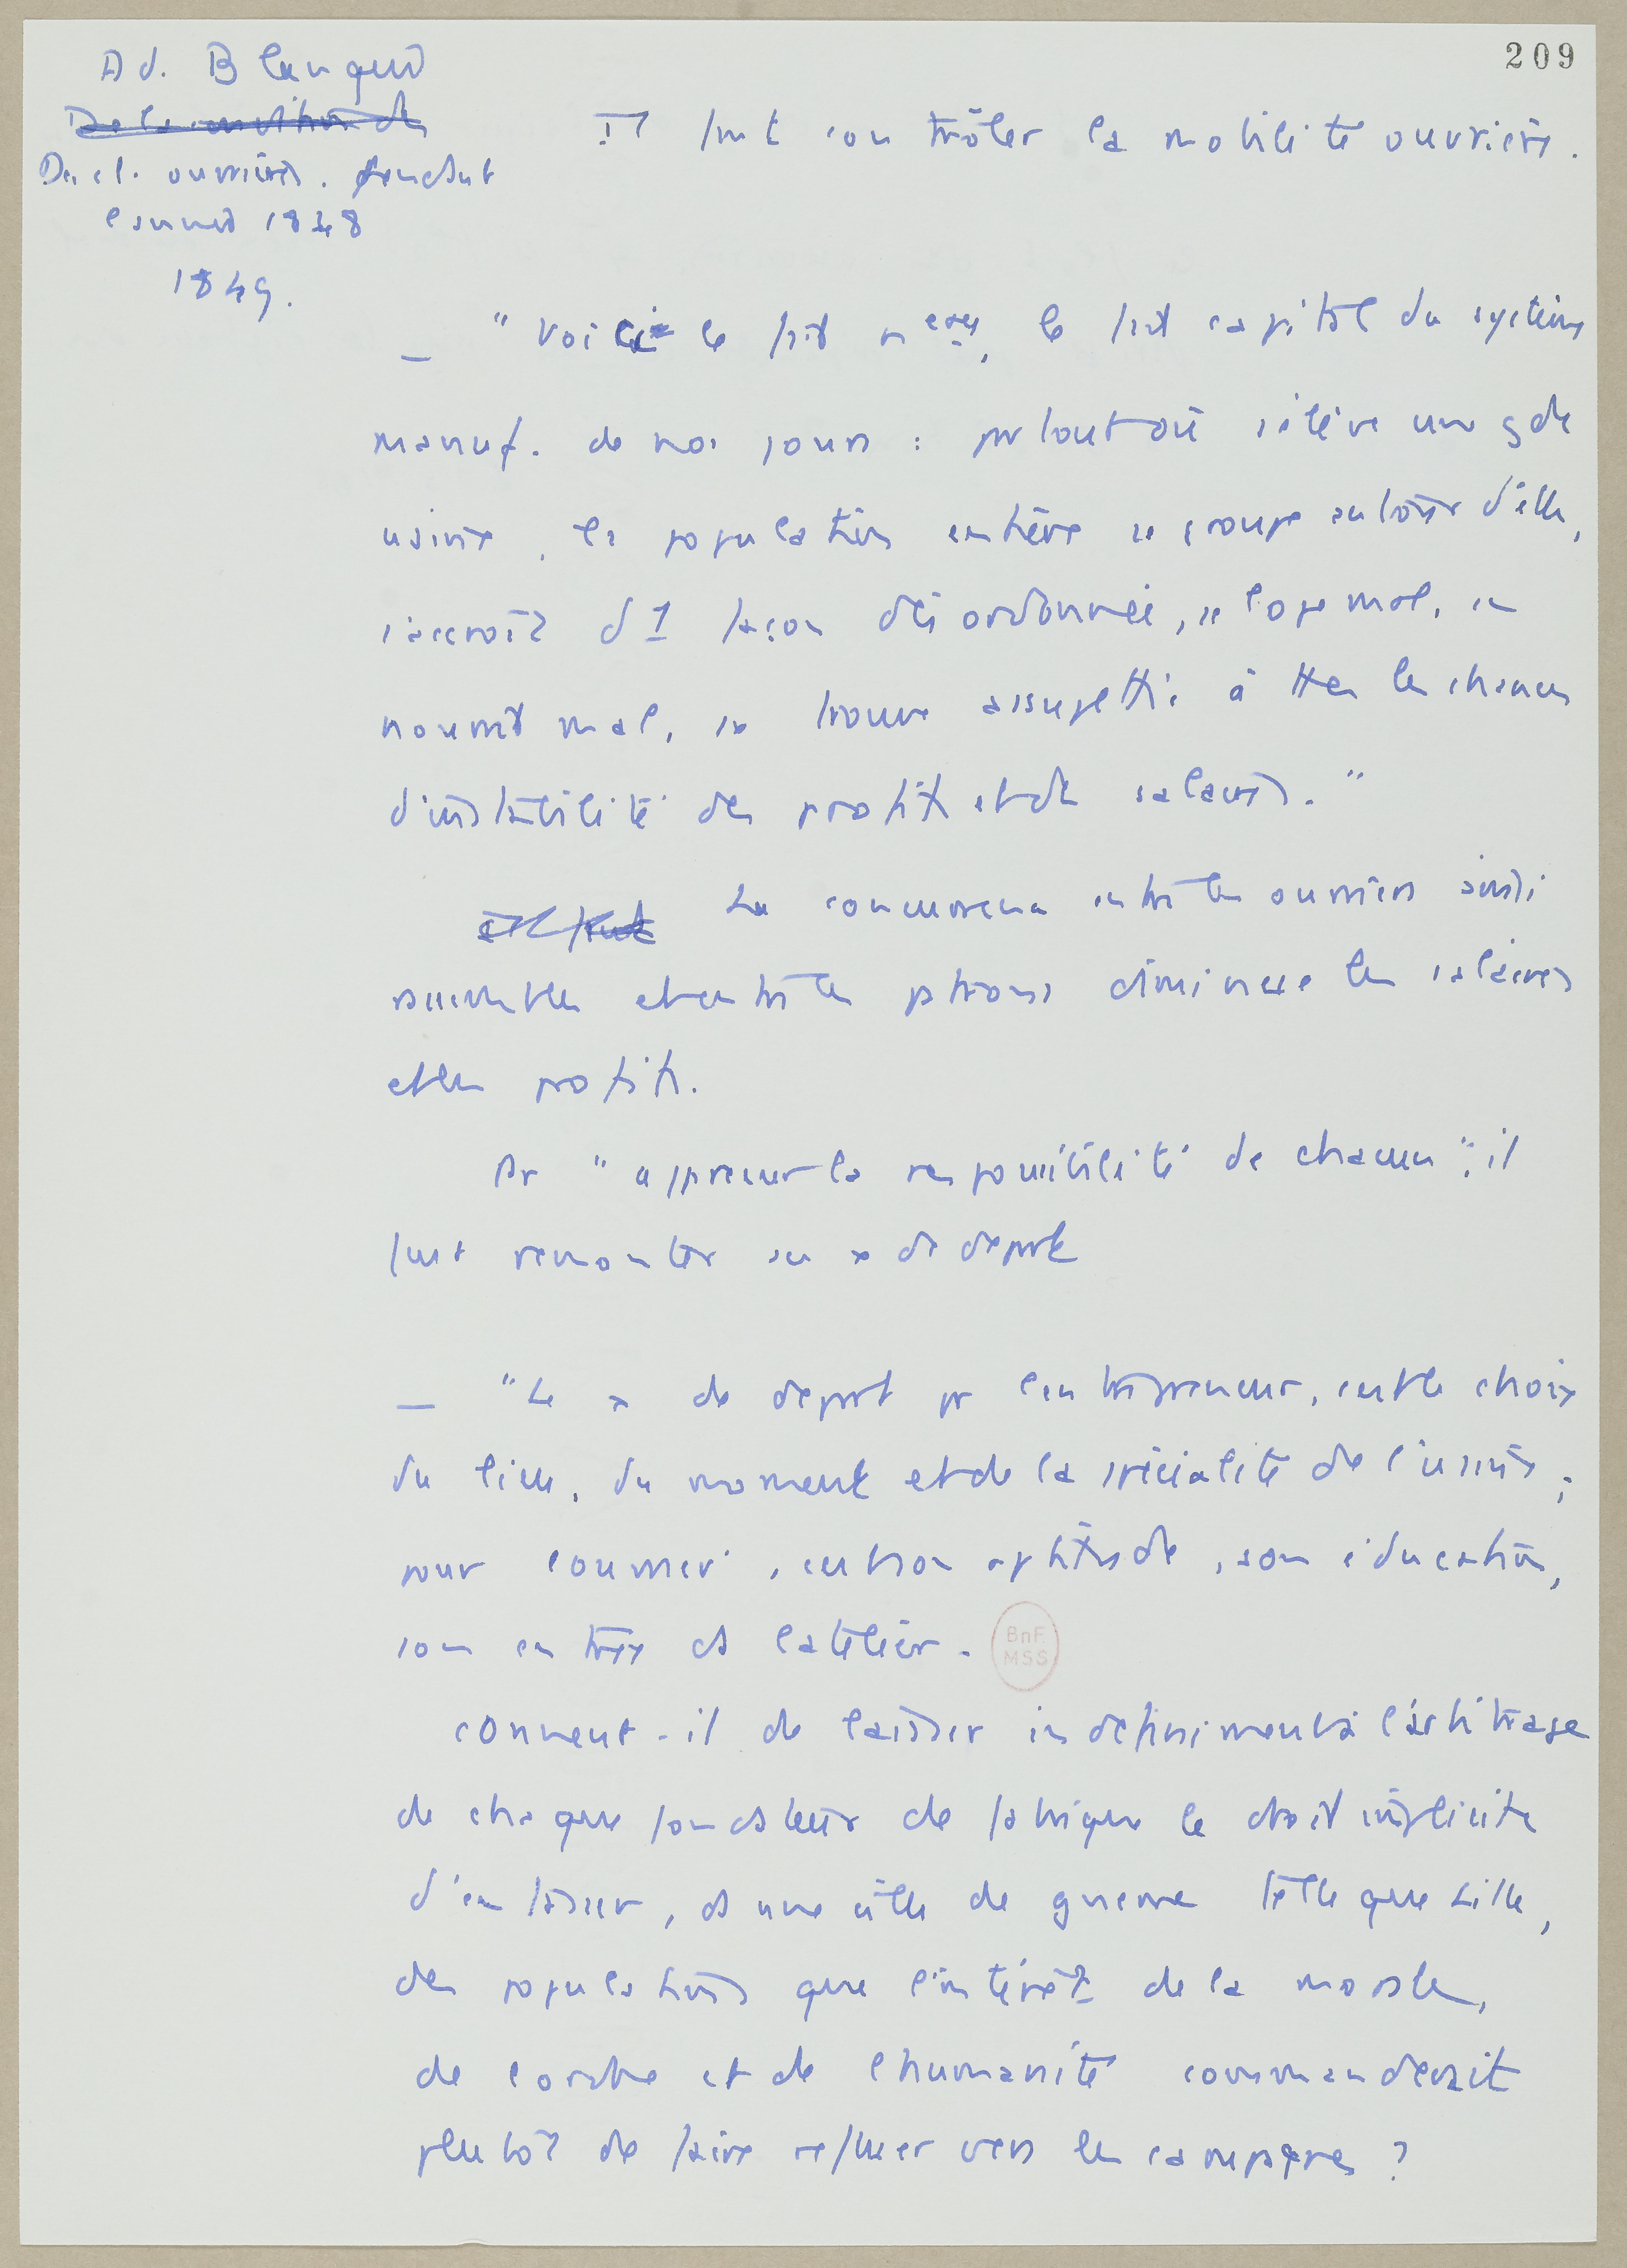 209
Ad. Blanqui
Des cl. ouvrières. pendant
l'année 1848
1849.
Il faut contrôler la mobilité ouvrière.
_ "Voici le fait nveau, le fait capital du système
manuf. de nos jours : partout où s'élève une gde
usine, la population entière se groupe autour d'elle,
s'accroît d'1 façon désordonnée, se loge mal, se
nourrit mal, se trouve assujettie à ttes les chances
d'instabilité des profits et des salaires."
Il faut La concurrence entre les ouvriers ainsi
rassemblés et entre les patrons diminue les salaires
et les profits.
Pr "apprécier la responsabilité de chacun", il
faut remonter au x de départ
_ "Le x de départ pr l'entrepreneur, c'est le choix
du lieu, du moment et de la spécialité de l'usine ;
pour l'ouvrier, c'est son aptitude, son éducation,
son entrée ds l'atelier.
BnF
MSS
Convient-il de laisser indéfiniment à l'arbitrage
de chaque fondateur de fabrique le droit implicite
d'entasser, ds une ville de guerre telle que Lille,
des populations que l'intérêt de la morale,
de l'ordre et de l'humanité commanderait
plutôt de faire refluer vers les campagnes ?